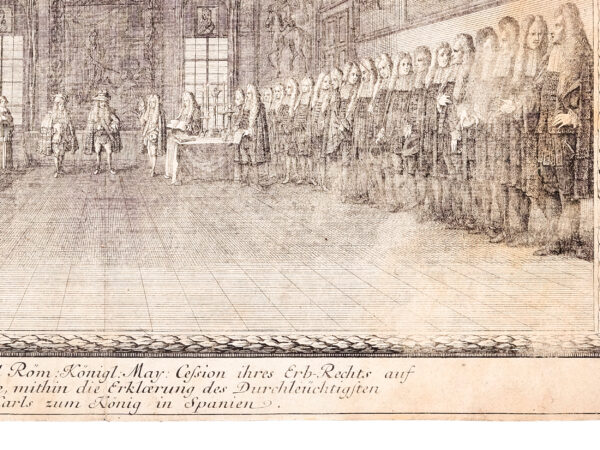 Röm: Königl: May: Cession ihres Erb-Rechts auf
mithin die Erklærung des Durchleüchtigsten
Carls zum König in Spanien.